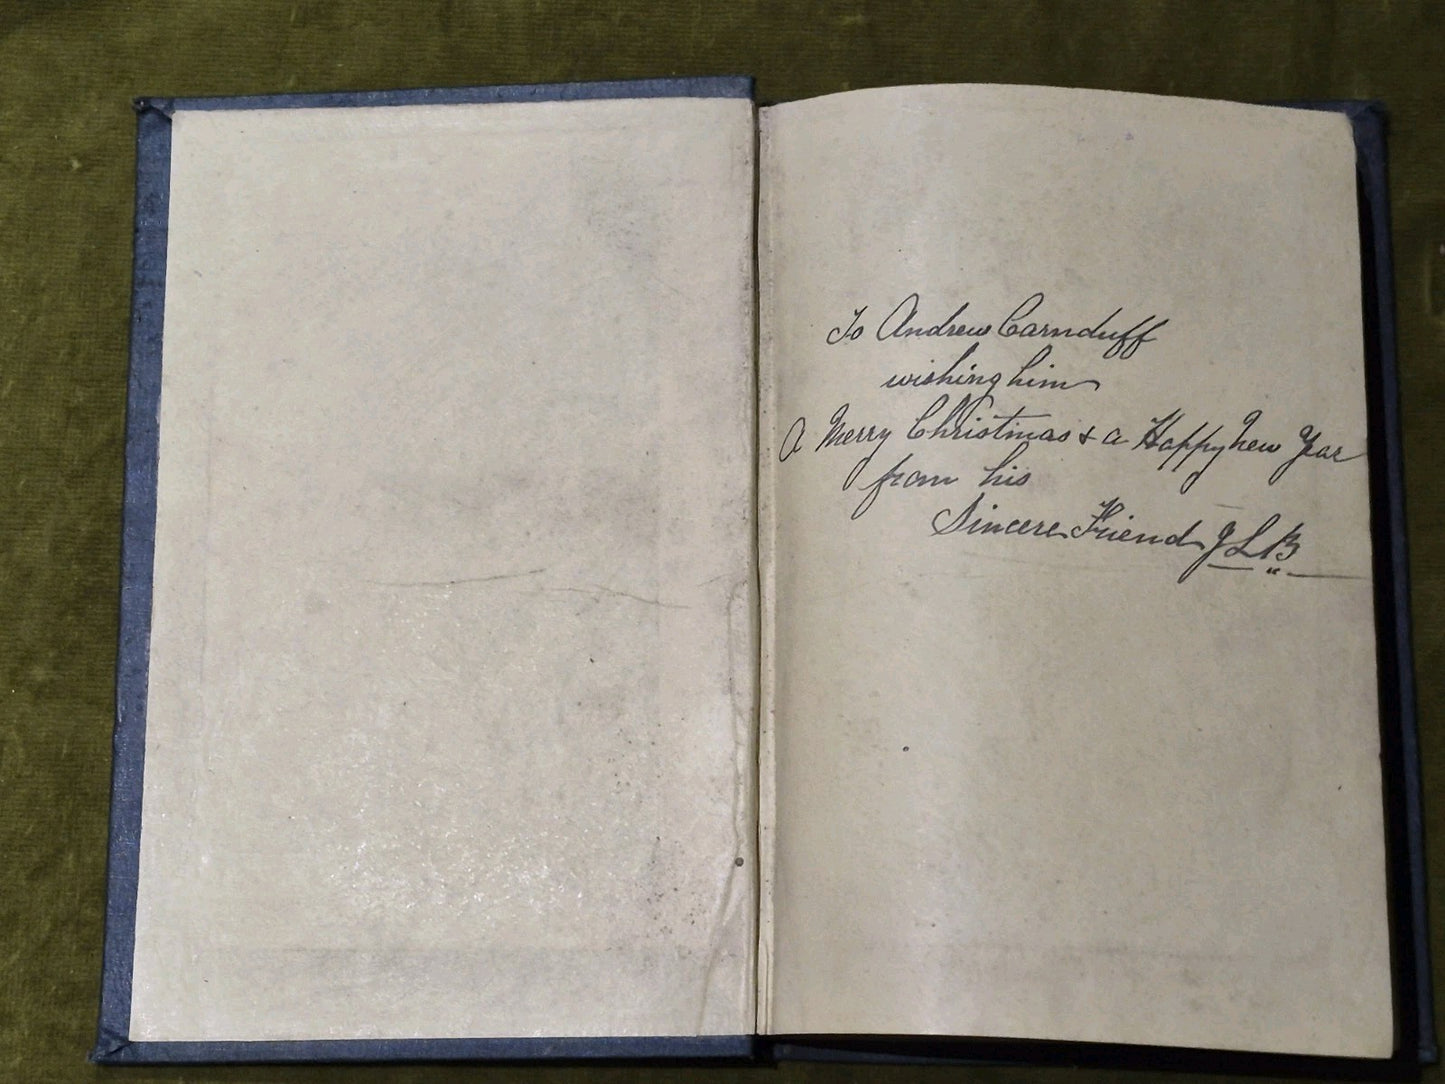 To Andrew Carnduff
wishing him
A Merry Christmas & a Happy New Year
from his
Sincere Friend J L B